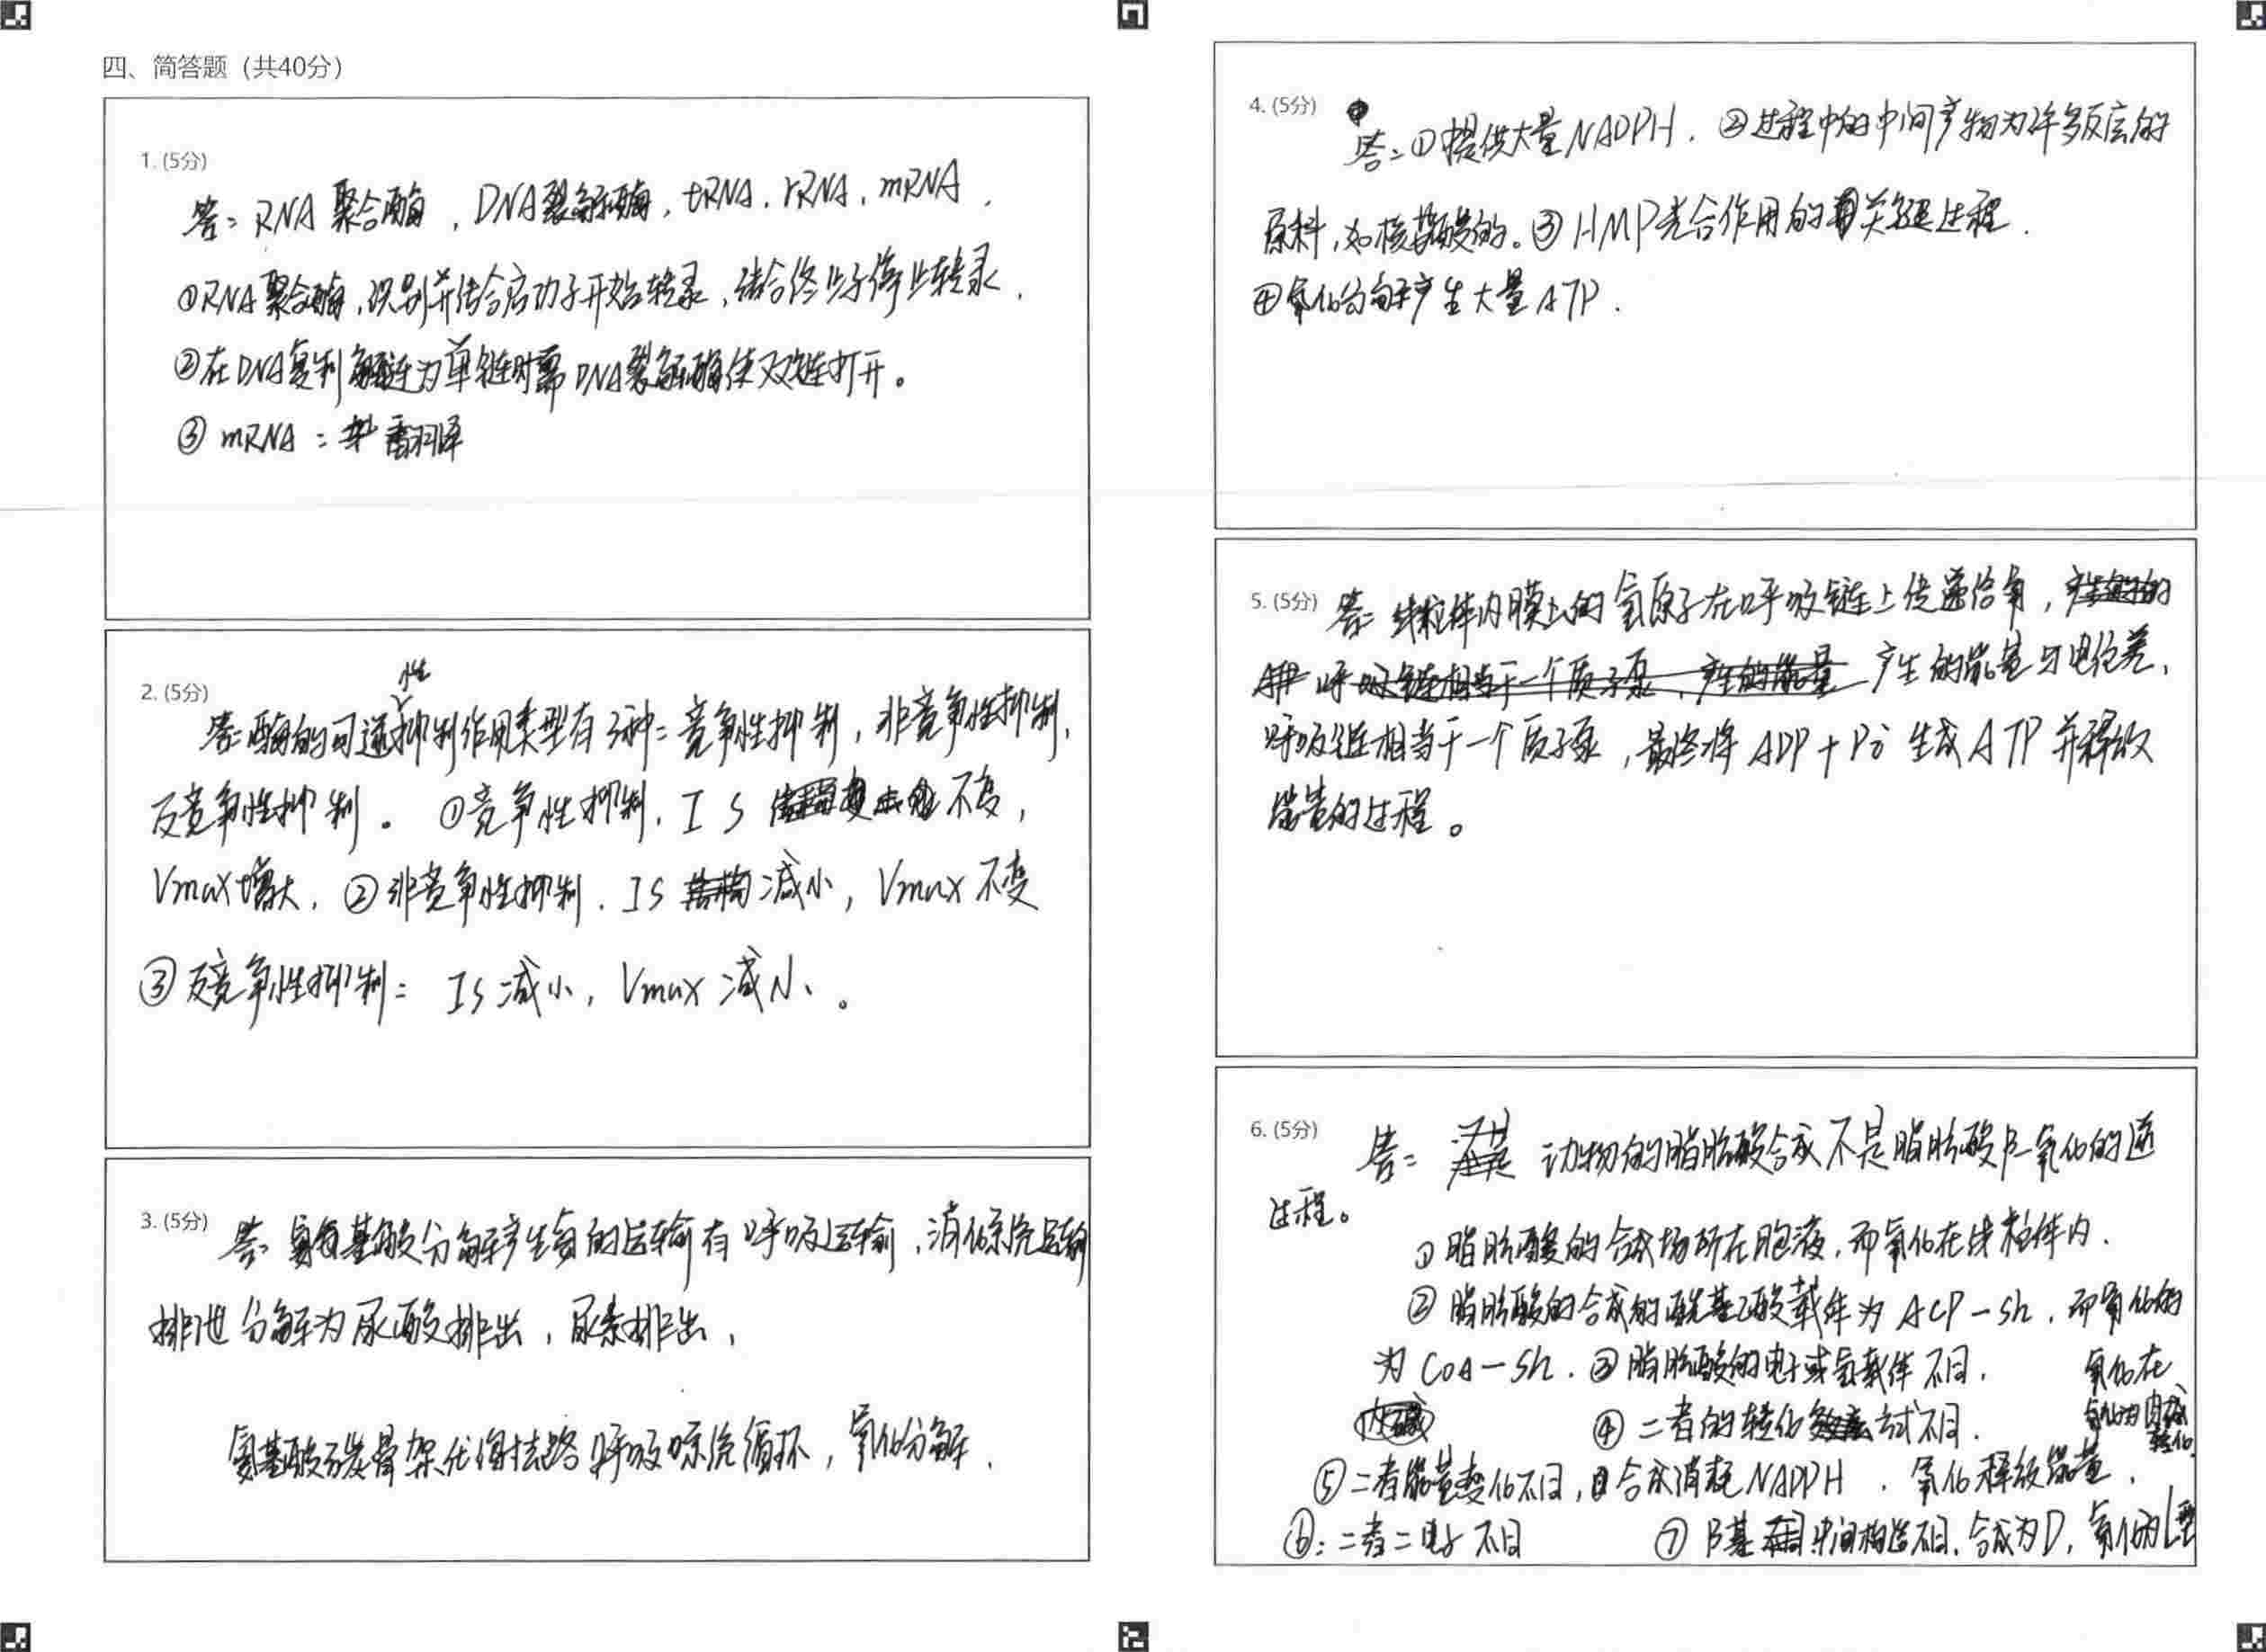 四、简答题（共40分）
1. (5分)
答：RNA聚合酶，DNA裂解酶，tRNA，rRNA，mRNA，
①RNA聚合酶，识别并结合启动子开始转录，结合终止子停止转录，
②在DNA复制解链为单链时需DNA裂解酶使双链打开。
③ mRNA：翻译
2. (5分)
答：酶的可逆性抑制作用类型有3种：竞争性抑制，非竞争性抑制，
反竞争性抑制。①竞争性抑制，IS 不变，
Vmax增大，②非竞争性抑制，IS 减小，Vmax不变
③反竞争性抑制：IS减小，Vmax减小。
3. (5分)
答：氨基酸分解产生氨的运输有呼吸运输，消化系统运输
排泄分解为尿酸排出，尿素排出，
氨基酸碳骨架代谢去路呼吸系统循环，氧化分解，
4. (5分)
答：①提供大量NADPH，②过程中的中间产物为许多反应的
原料，如核苷酸的。③HMP光合作用的关键过程．
④氧化分解产生大量ATP．
5. (5分)
答：线粒体内膜上的氢原子在呼吸链上传递给氧，
产生的能量与电位差，
呼吸链相当于一个质子泵，最终将ADP+Pi生成ATP并释放
能量的过程。
6. (5分)
答：动物的脂肪酸合成不是脂肪酸β-氧化的逆
过程。
①脂肪酸的合成场所在胞液，而氧化在线粒体内．
②脂肪酸的合成的酰基载体为ACP-Sh，而氧化的
为CoA-Sh．③脂肪酸的电子或氢载体不同．
④二者的转化方式不同．
氧化在
⑤二者能量变化不同，合成消耗NADPH，氧化释放能量，
⑥：二者二电子不同
⑦β基中间构造不同，合成为D，氧化为L型